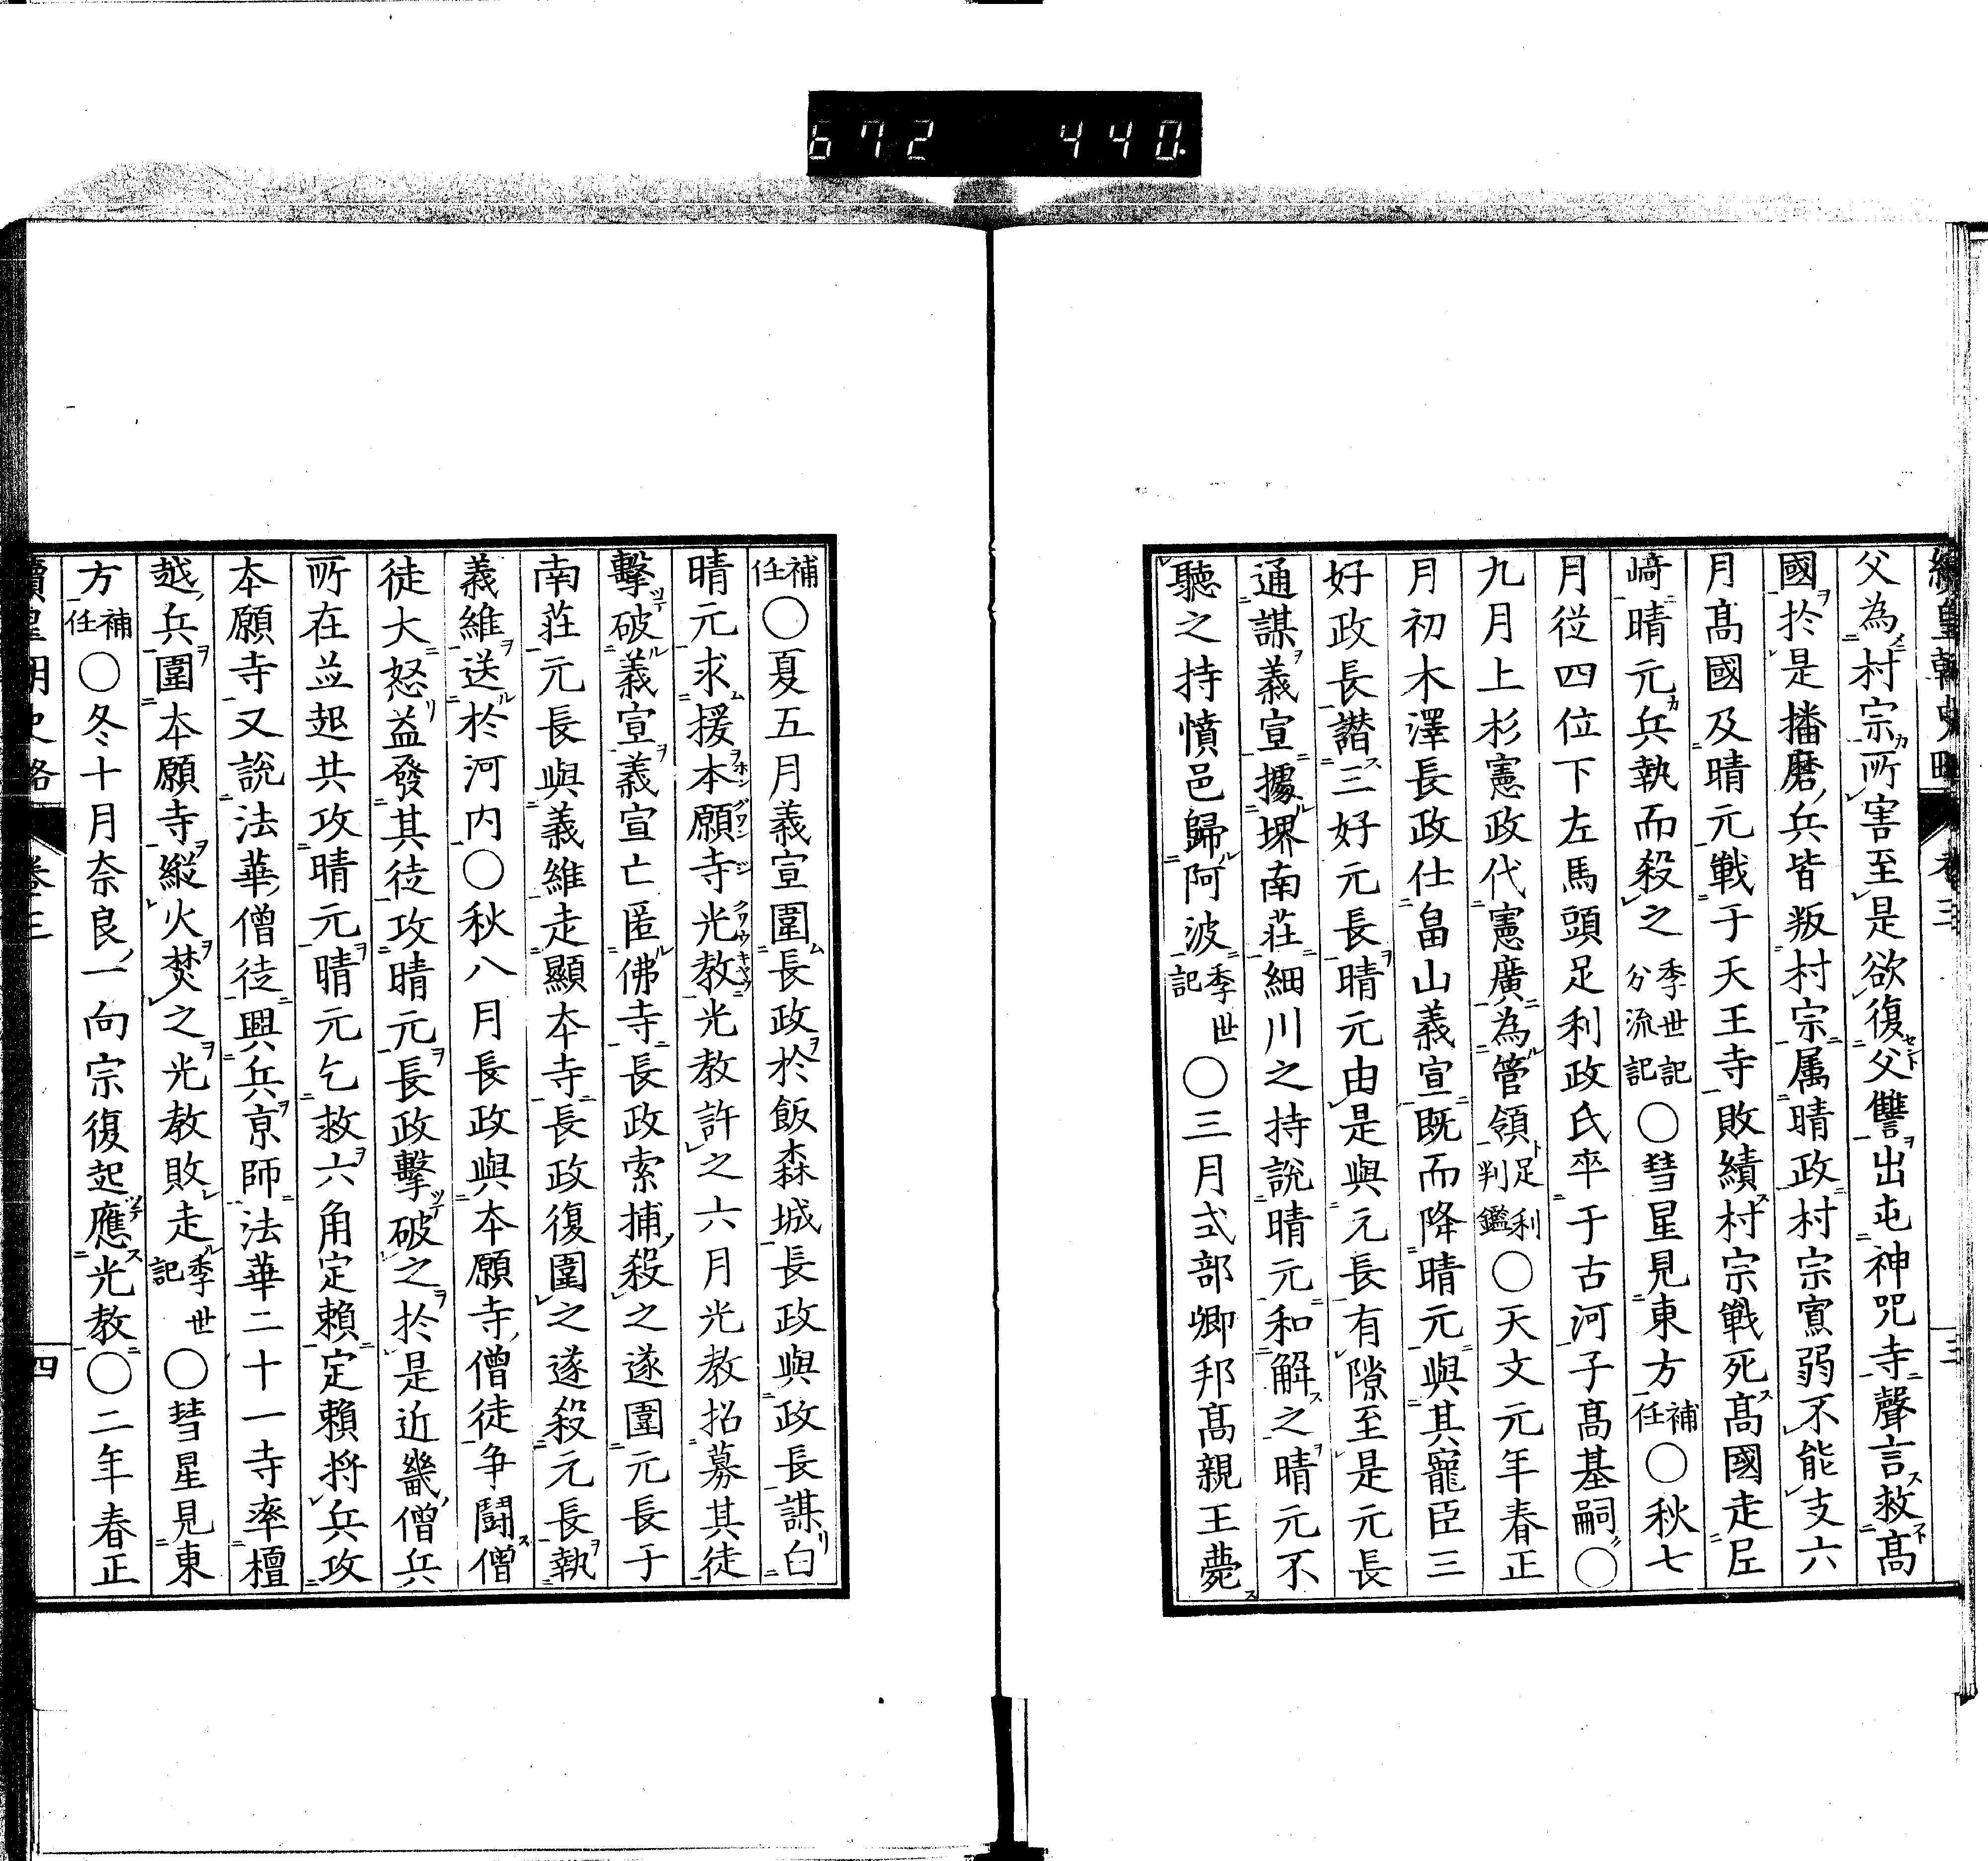 672 440
續皇朝史略 卷三 三
父為村宗所害至是欲復父讐出屯神呪寺聲言救髙
國於是播磨兵皆叛村宗属晴政村宗寡弱不能支六
月髙國及晴元戰于天王寺敗績村宗戰死髙國走尼
﨑晴元兵執而殺之季世記分流記〇彗星見東方補任〇秋七
月從四位下左馬頭足利政氏卒于古河子髙基嗣〇
九月上杉憲政代憲廣為管領足利判鑑〇天文元年春正
月初木澤長政仕畠山義宣既而降晴元與其寵臣三
好政長譖三好元長晴元由是與元長有隙至是元長
通謀義宣據堺南莊細川之持說晴元和解之晴元不
聽之持憤邑歸阿波季世記〇三月式部卿邦髙親王薨
補任〇夏五月義宣圍長政於飯森城長政與政長謀白
晴元求援本願寺光教光教許之六月光教招募其徒
擊破義宣義宣亡匿佛寺長政索捕殺之遂圍元長于
南莊元長與義維走顯本寺長政復圍之遂殺元長執
義維送於河内〇秋八月長政與本願寺僧徒争鬪僧
徒大怒益發其徒攻晴元長政擊破之於是近畿僧兵
所在並起共攻晴元晴元乞救六角定賴定賴將兵攻
本願寺又說法華僧徒興兵京師法華二十一寺率檀
越兵圍本願寺縱火焚之光教敗走季世記〇彗星見東
方補任〇冬十月奈良一向宗復起應光教〇二年春正
續皇朝史略 卷三 四